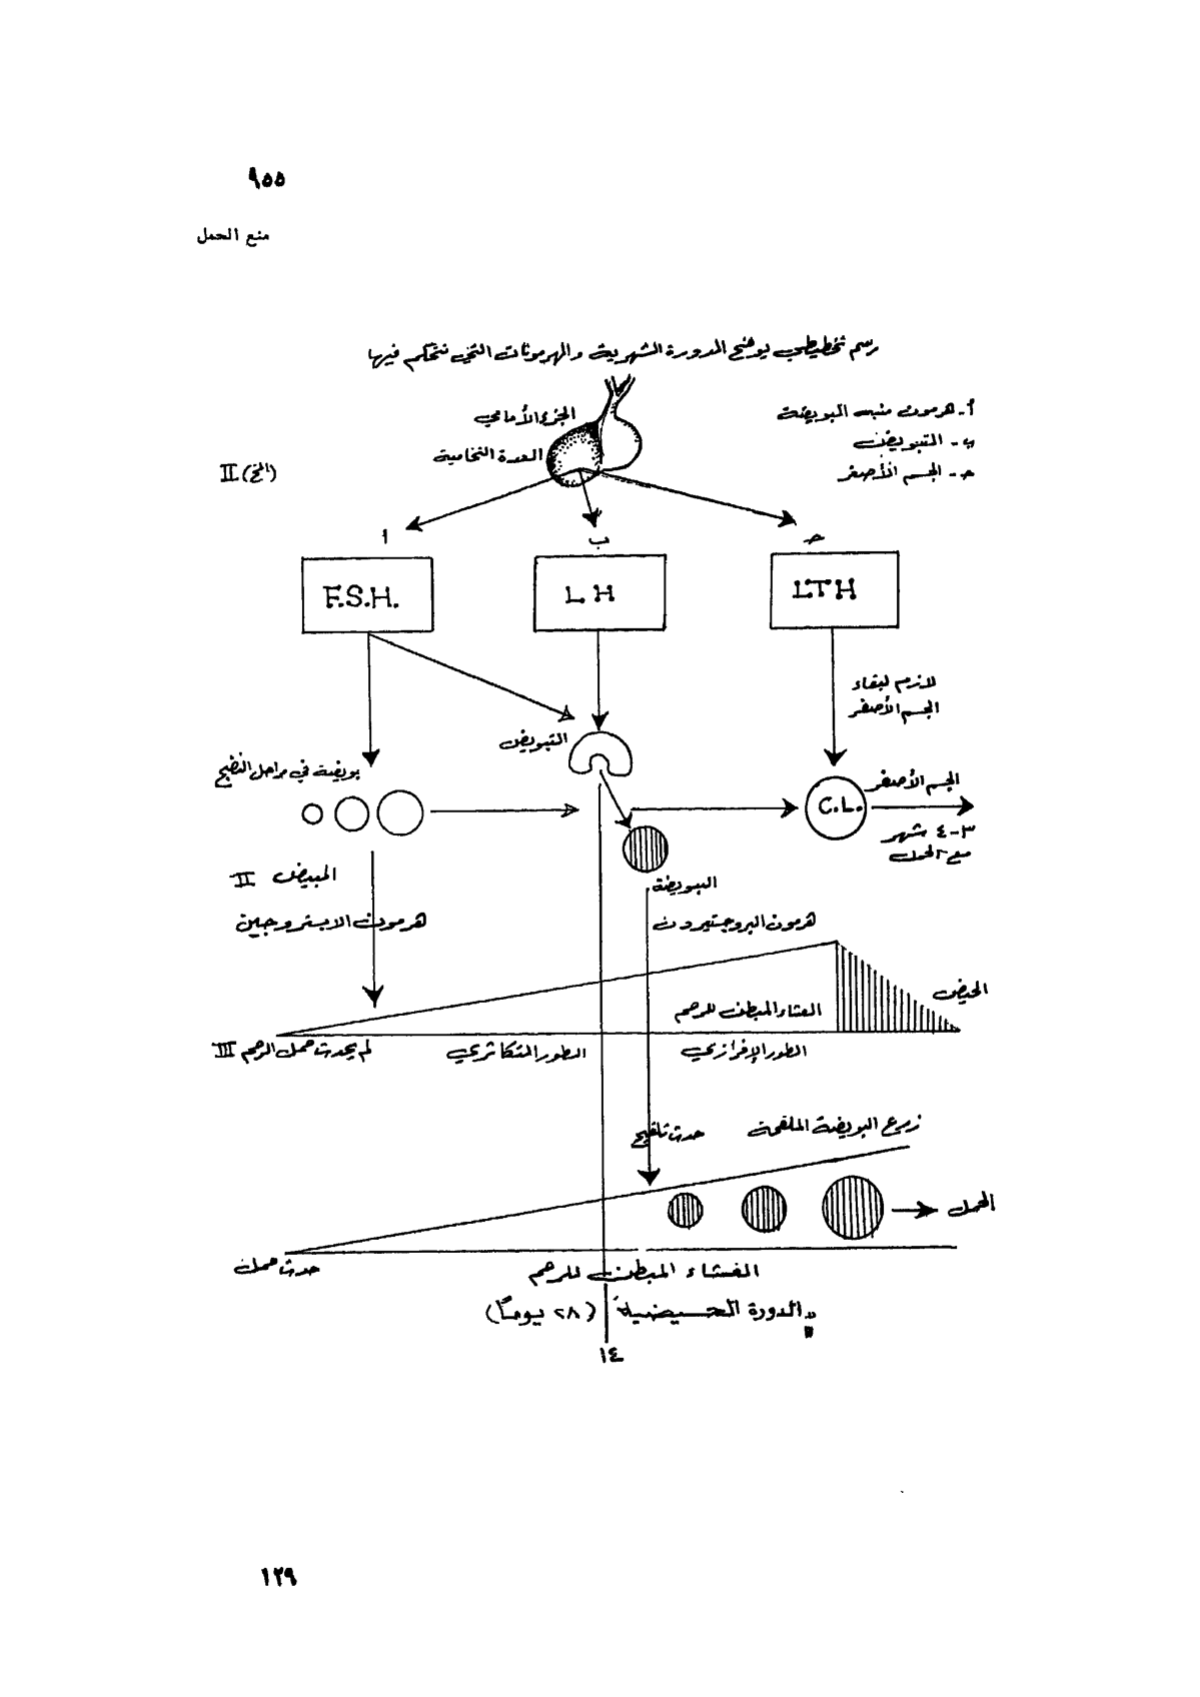 ٩٥٥
منع الحمل
رسم تخطيطي يوضح الدورة الشهرية والهرمونات التي تتحكم فيها
أ- هرمون منبه البويضة
ب- التبويض
حـ- الجسم الأصفر
الجزء الأمامي
الغدة النخامية
(المخ) II
أ
ب
حـ
F.S.H.
L H
LTH
لازم لبقاء
الجسم الأصفر
التبويض
بويضة في مراحل النضج
الجسم الأصفر
C.L.
٣-٤ شهر
مع الحمل
المبيض II
البويضة
هرمون الاستروجين
هرمون البروجستيرون
الحيض
الغشاء المبطن للرحم
لم يحدث حمل الرحم III
الطور التكاثري
الطور الإفرازي
زرع البويضة الملقحة
حدث تلقيح
الحمل
حدث حمل
الغشاء المبطن للرحم
الدورة الحيضية (٢٨ يوماً)
١٤
١٢٩